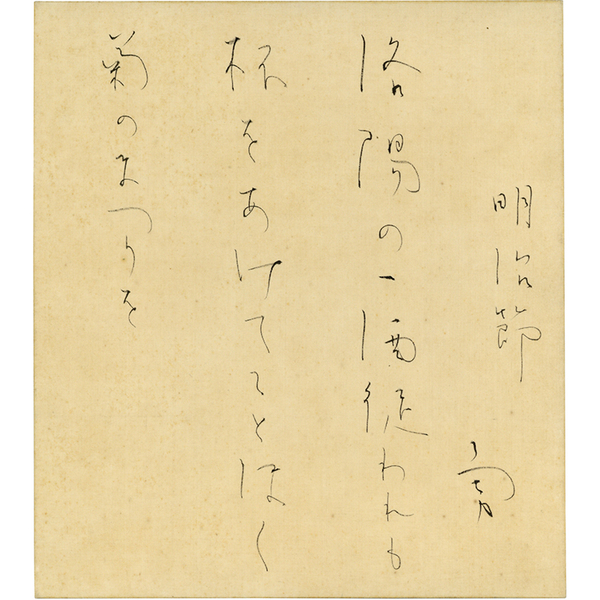 明治節
勇
洛陽の一酒徒われも
杯をあげてことほく
菊のまつりを